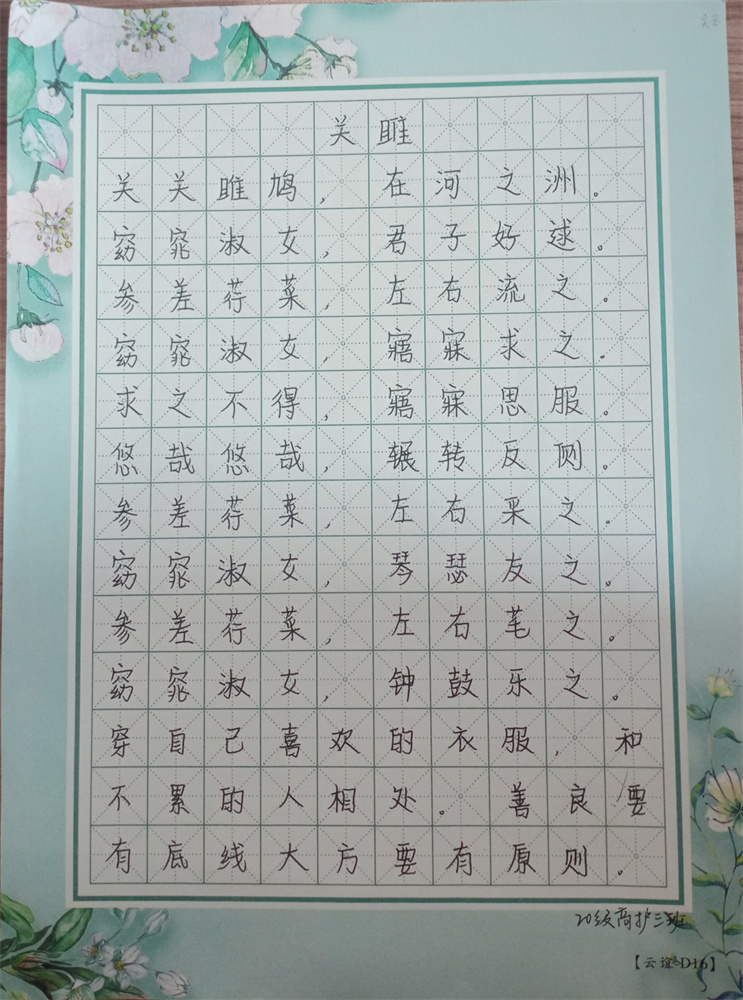 关雎
关关雎鸠，在河之洲。
窈窕淑女，君子好逑。
参差荇菜，左右流之。
窈窕淑女，寤寐求之。
求之不得，寤寐思服。
悠哉悠哉，辗转反侧。
参差荇菜，左右采之。
窈窕淑女，琴瑟友之。
参差荇菜，左右芼之。
窈窕淑女，钟鼓乐之。
穿自己喜欢的衣服，和
不累的人相处。善良要
有底线大方要有原则。
20级高护三班
【云谊-D16】